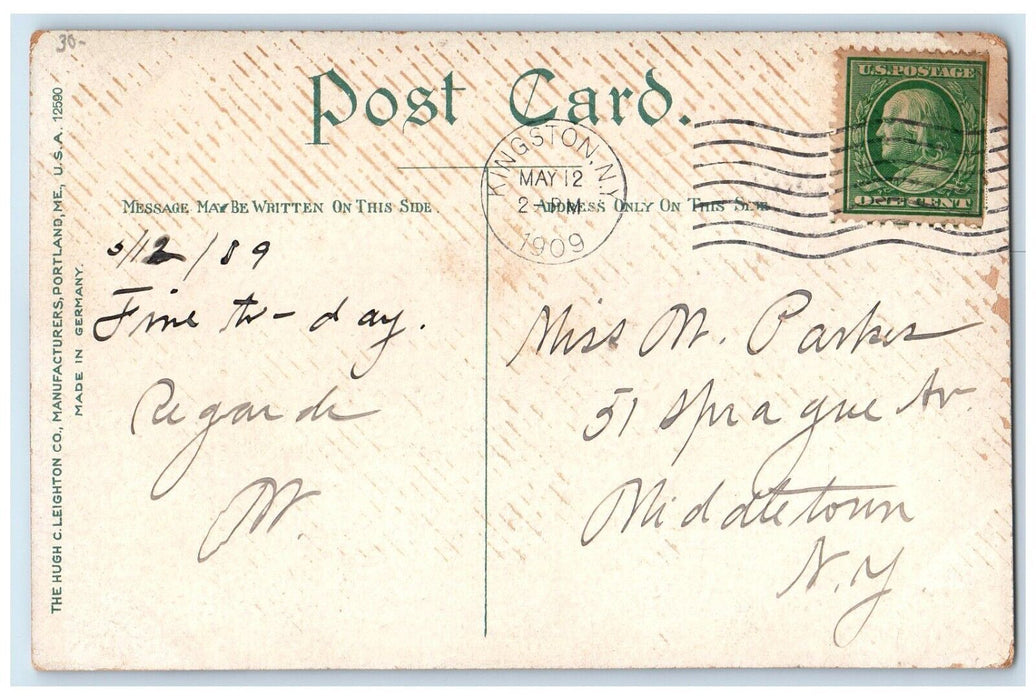 30-
Post Card.
U.S. POSTAGE
ONE CENT
KINGSTON, N.Y.
MAY 12
2-PM
1909
MESSAGE MAY BE WRITTEN ON THIS SIDE.
ADDRESS ONLY ON THIS SIDE.
5/12/09
Fine to-day.
Regards
M.
Miss M. Parker
51 Sprague Av.
Middletown
N.Y
THE HUGH C. LEIGHTON CO., MANUFACTURERS, PORTLAND, ME., U.S.A. 12590
MADE IN GERMANY.